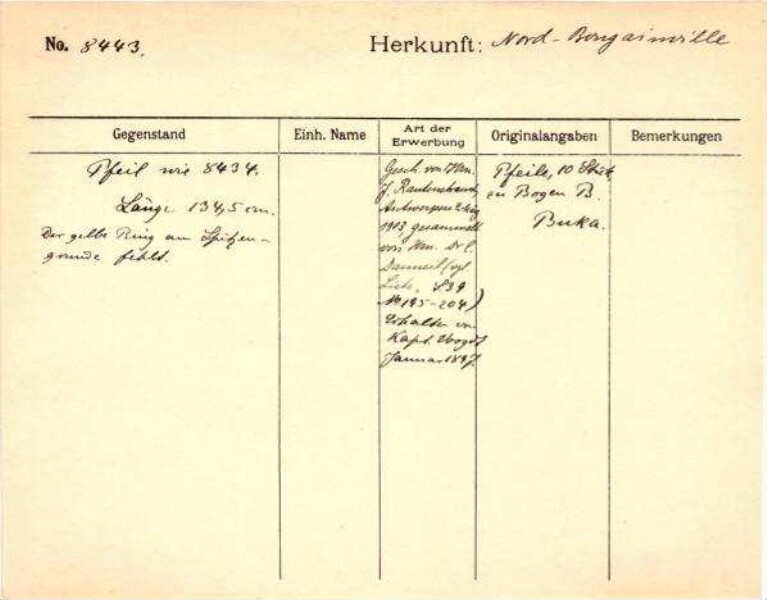 No. 8443.
Herkunft: Nord-Bougainville
Gegenstand
Einh. Name
Art der Erwerbung
Originalangaben
Bemerkungen
Pfeil wie 8434.
Länge 134,5 cm.
Der gelbe Ring am Spitzen-
grunde fehlt.
Gesch. von Hrn.
J. Rautenstrauch,
Antwerpen
1913, gesammelt
von Hrn. Dr C.
Danneil (vgl
S 39
No 195-204)
Erhalten von
Kapt. Voogdt
Januar 1897.
Pfeile, 10 Stück
zu Bogen B.
Buka.